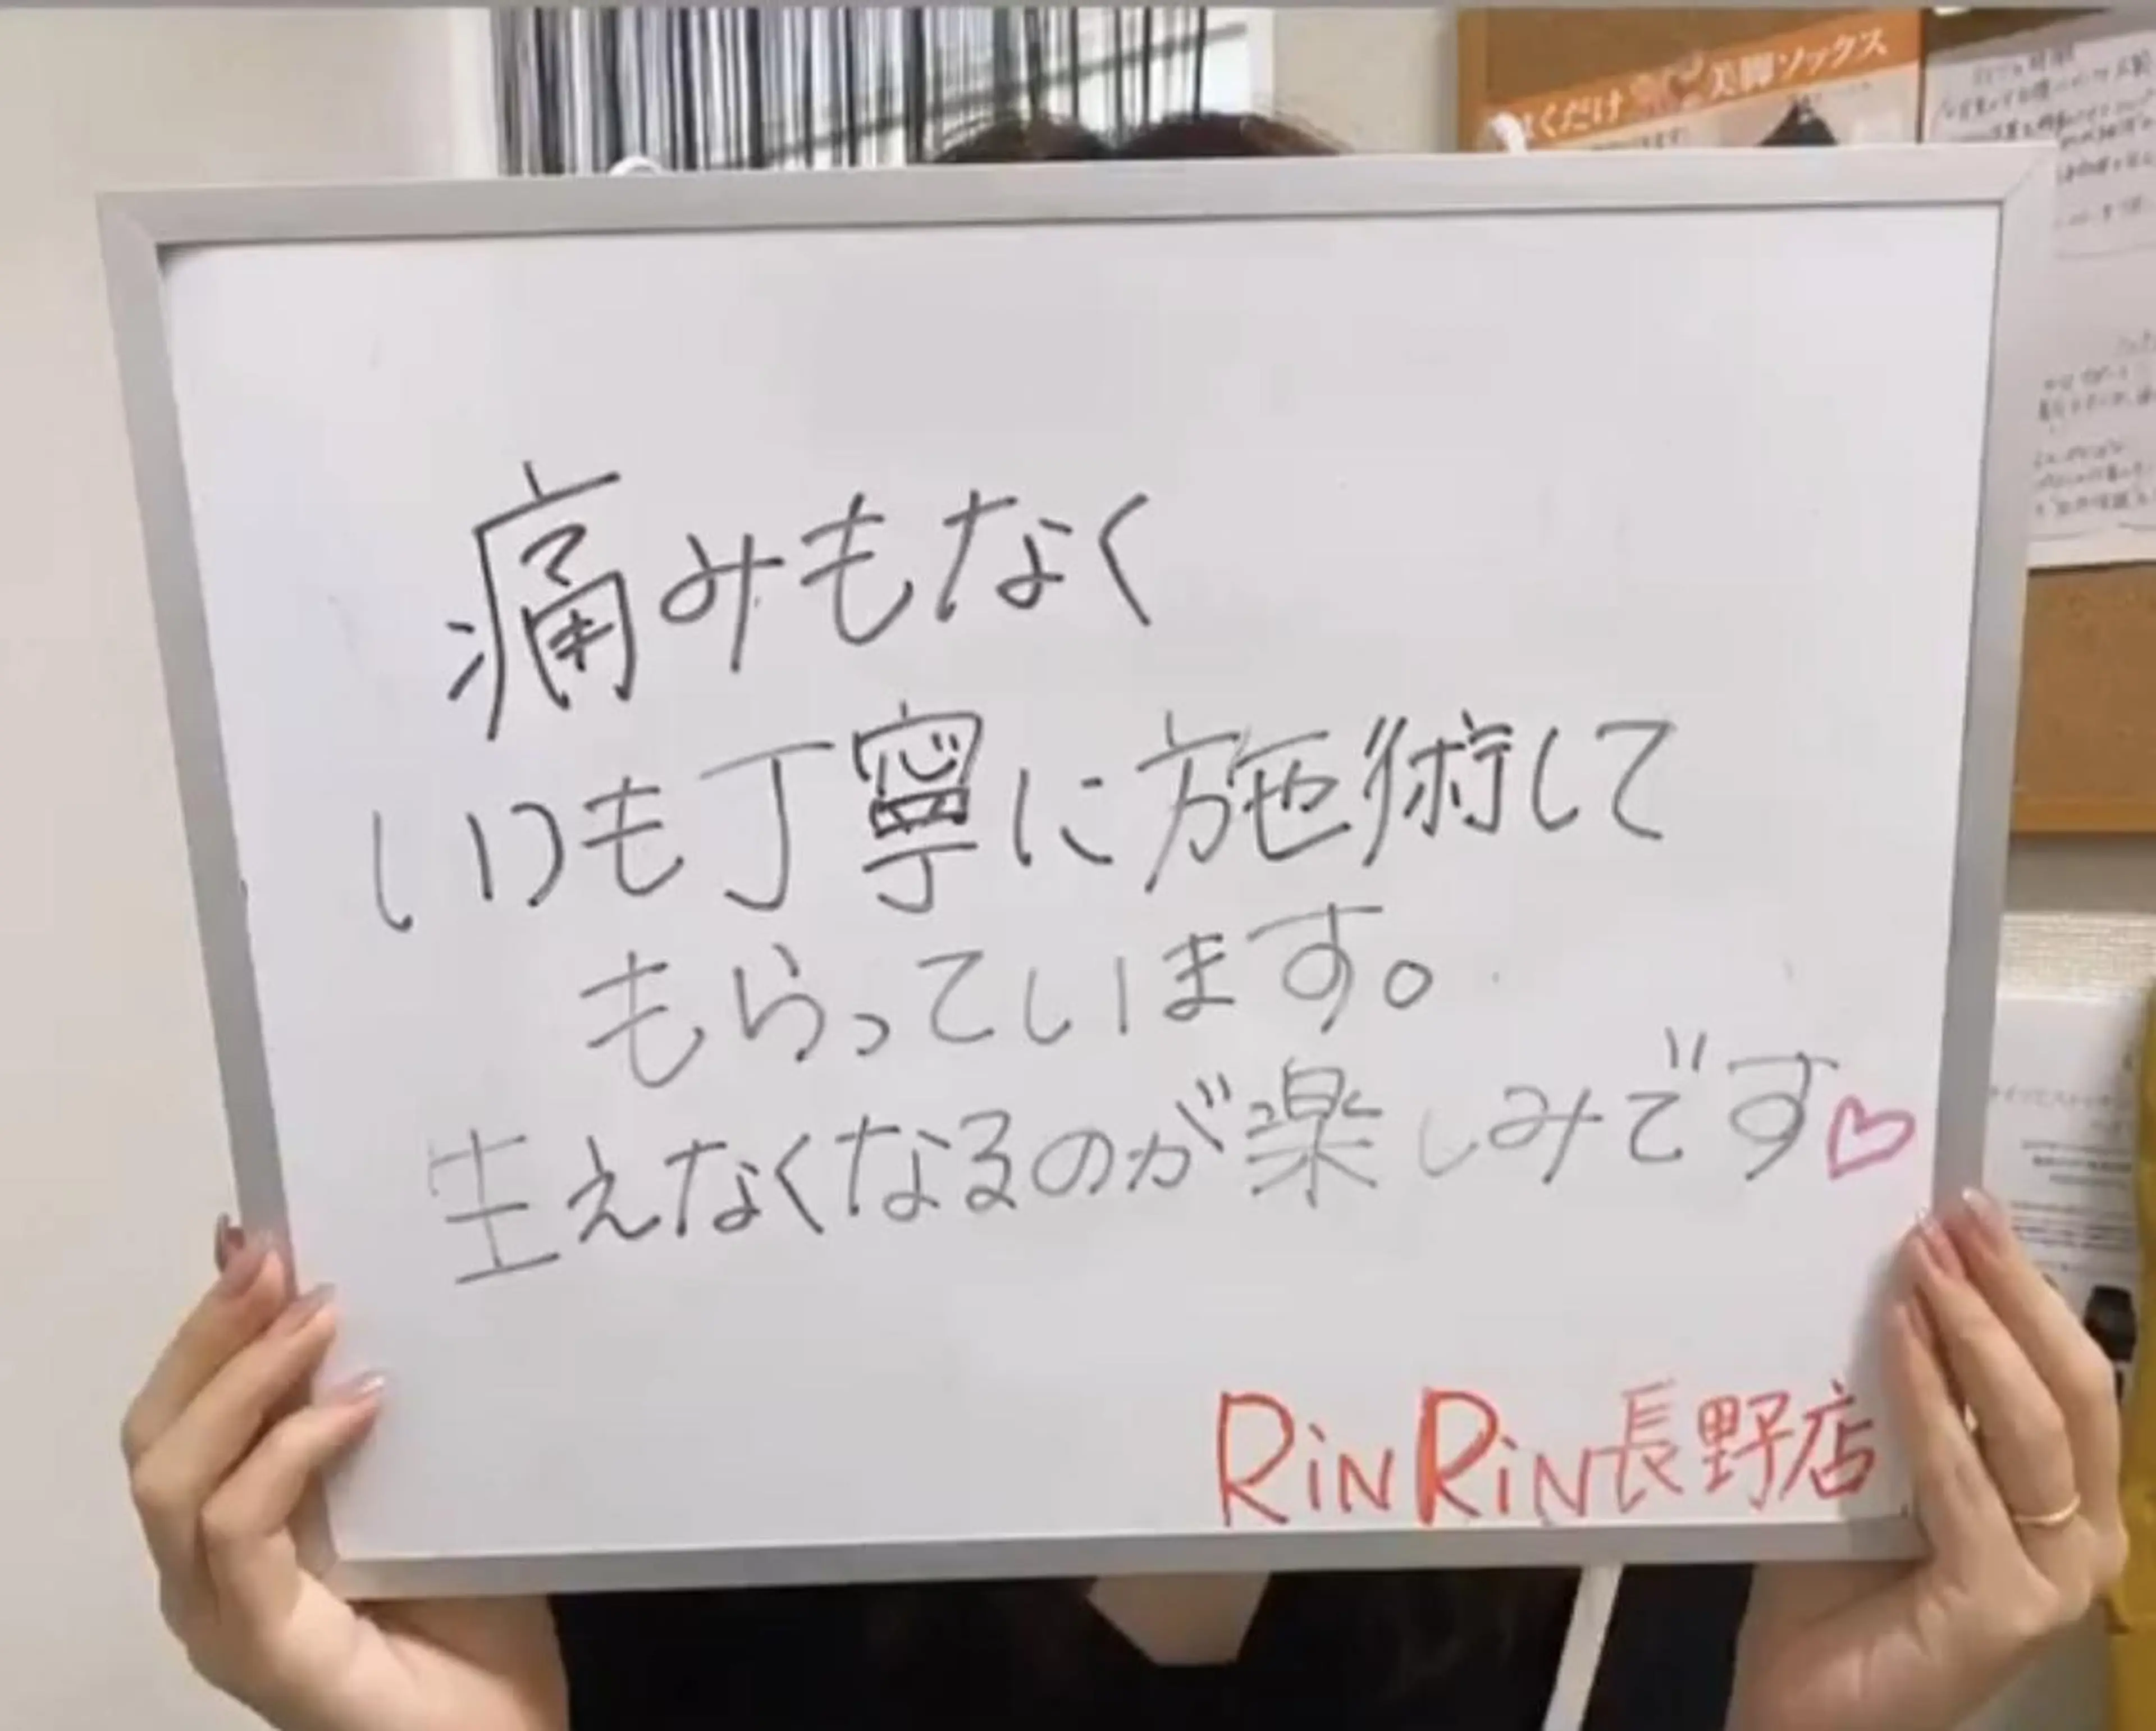 くだけ 美脚ソックス
痛みもなく
いつも丁寧に施術して
もらっています。
生えなくなるのが楽しみです♡
RiNRiN長野店